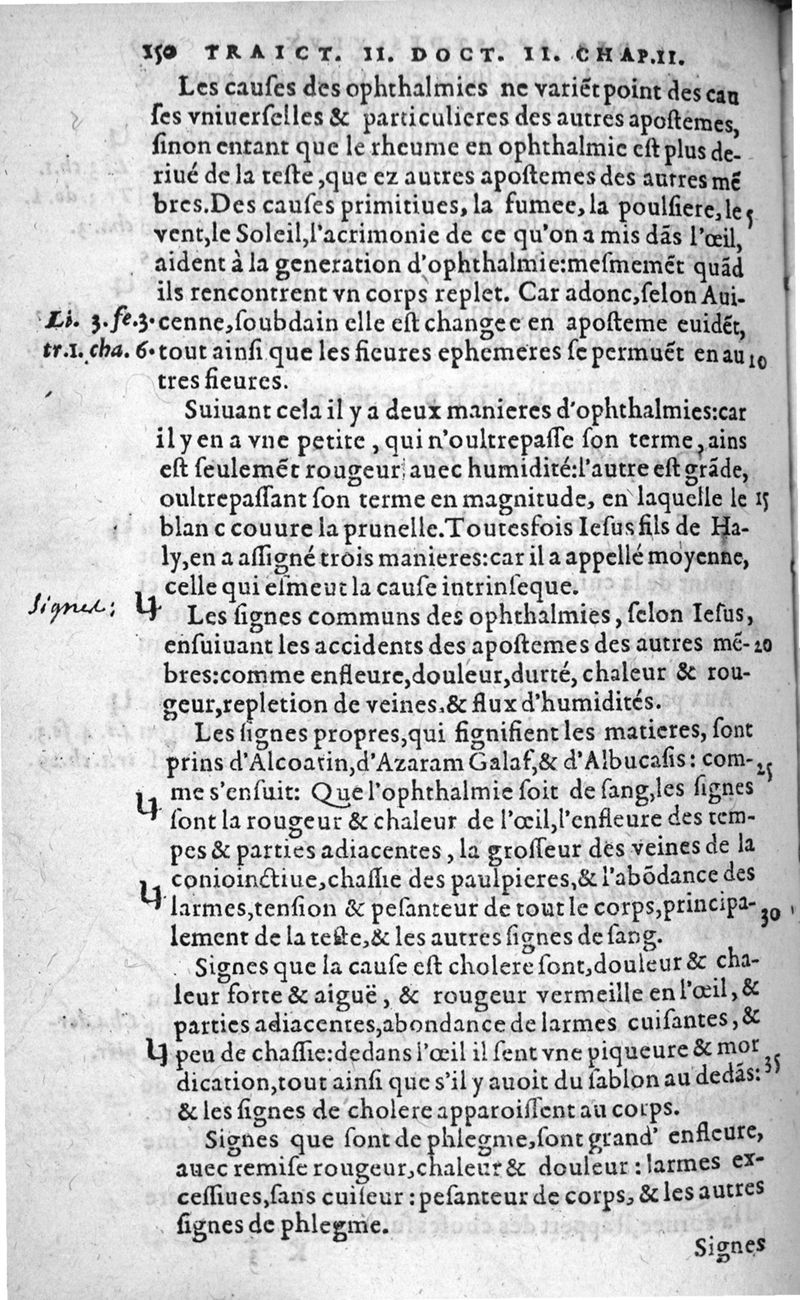 150 TRAICT. II. DOCT. II. CHAP.II.
Les cauſes des ophthalmies ne variẽt point des cau
ſes vniuerſelles & particulieres des autres apoſtemes,
ſinon entant que le rheume en ophthalmie eſt plus de-
riué de la teſte, que ez autres apoſtemes des autres mẽ
bres. Des cauſes primitiues, la fumee, la poulſiere, le 5
vent, le Soleil, l'acrimonie de ce qu'on a mis dãs l'œil,
aident à la generation d'ophthalmie: meſmemẽt quãd
ils rencontrent vn corps replet. Car adonc, ſelon Aui-
Li. 3. fe. 3. cenne, ſoubdain elle eſt changee en apoſteme euidẽt,
tr.1. cha. 6. tout ainſi que les fieures ephemeres ſe permuẽt en au 10
tres fieures.
Suiuant cela il y a deux manieres d'ophthalmies: car
il y en a vne petite, qui n'oultrepaſſe ſon terme, ains
eſt ſeulemẽt rougeur auec humidité: l'autre eſt grãde,
oultrepaſſant ſon terme en magnitude, en laquelle le 15
blanc couure la prunelle. Toutesfois Ieſus fils de Ha-
ly, en a aſſigné trois manieres: car il a appellé moyenne,
celle qui eſmeut la cauſe intrinſeque.
Signes: Les ſignes communs des ophthalmies, ſelon Ieſus,
enſuiuant les accidents des apoſtemes des autres mẽ- 20
bres: comme enfleure, douleur, durté, chaleur & rou-
geur, repletion de veines, & flux d'humidités.
Les ſignes propres, qui ſignifient les matieres, ſont
prins d'Alcoatin, d'Azaram Galaf, & d'Albucaſis: com- 25
me s'enſuit: Que l'ophthalmie ſoit de ſang, les ſignes
ſont la rougeur & chaleur de l'œil, l'enfleure des tem-
pes & parties adiacentes, la groſſeur des veines de la
conioinctiue, chaſſie des paulpieres, & l'abõdance des
larmes, tenſion & peſanteur de tout le corps, principa- 30
lement de la teſte, & les autres ſignes de ſang.
Signes que la cauſe eſt cholere ſont, douleur & cha-
leur forte & aiguë, & rougeur vermeille en l'œil, &
parties adiacentes, abondance de larmes cuiſantes, &
peu de chaſſie: dedans l'œil il ſent vne piqueure & mor 35
dication, tout ainſi que s'il y auoit du ſablon au dedãs:
& les ſignes de cholere apparoiſſent au corps.
Signes que ſont de phlegme, ſont grand' enfleure,
auec remiſe rougeur, chaleur & douleur: larmes ex-
ceſſiues, ſans cuiſeur: peſanteur de corps, & les autres
ſignes de phlegme.
Signes